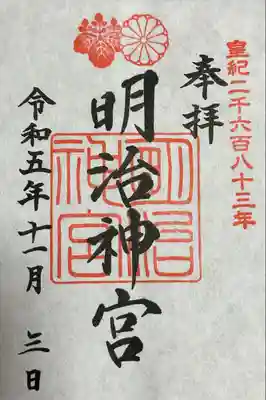 皇紀二千六百八十三年
奉拝
明治神宮
明治神宮
令和五年十一月三日